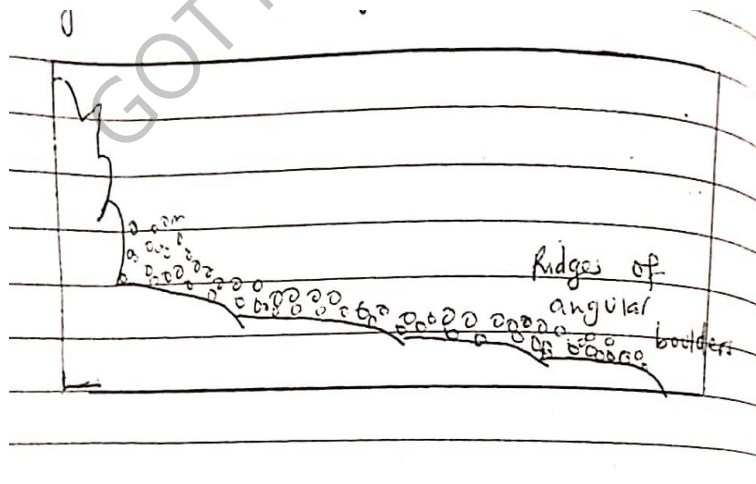 GOT
Ridges of
angular
boulders